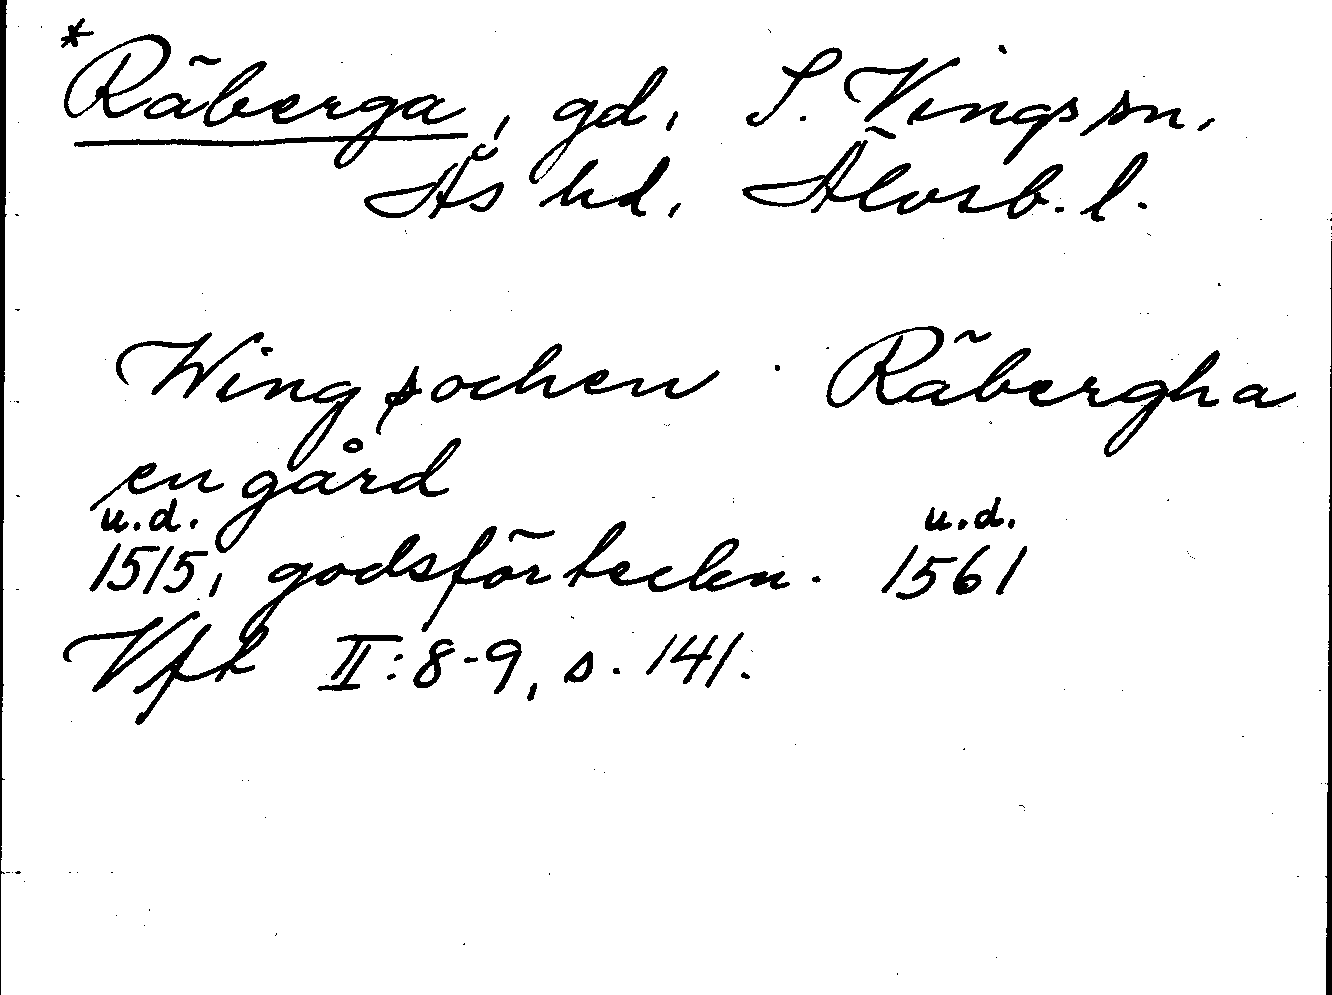 *Räberga, gd, S. Vings sn.
Ås hd, Älvsb. l.
Wing sochen. Räbergha
en gård
u.d. u.d.
1515, godsförteckn. 1561
Vfh II:8-9, s. 141.